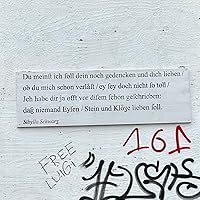 Du meinſt ich ſoll dein noch gedencken und dich lieben /
ob du mich schon verläſt / ey ſey doch nicht ſo toll /
Ich habe dir ja offt vor diſem ſchon geſchrieben:
daß niemand Eyſen / Stein und Klöge lieben ſoll.
Sibylla Schwarz
161
FREE
LUIGI